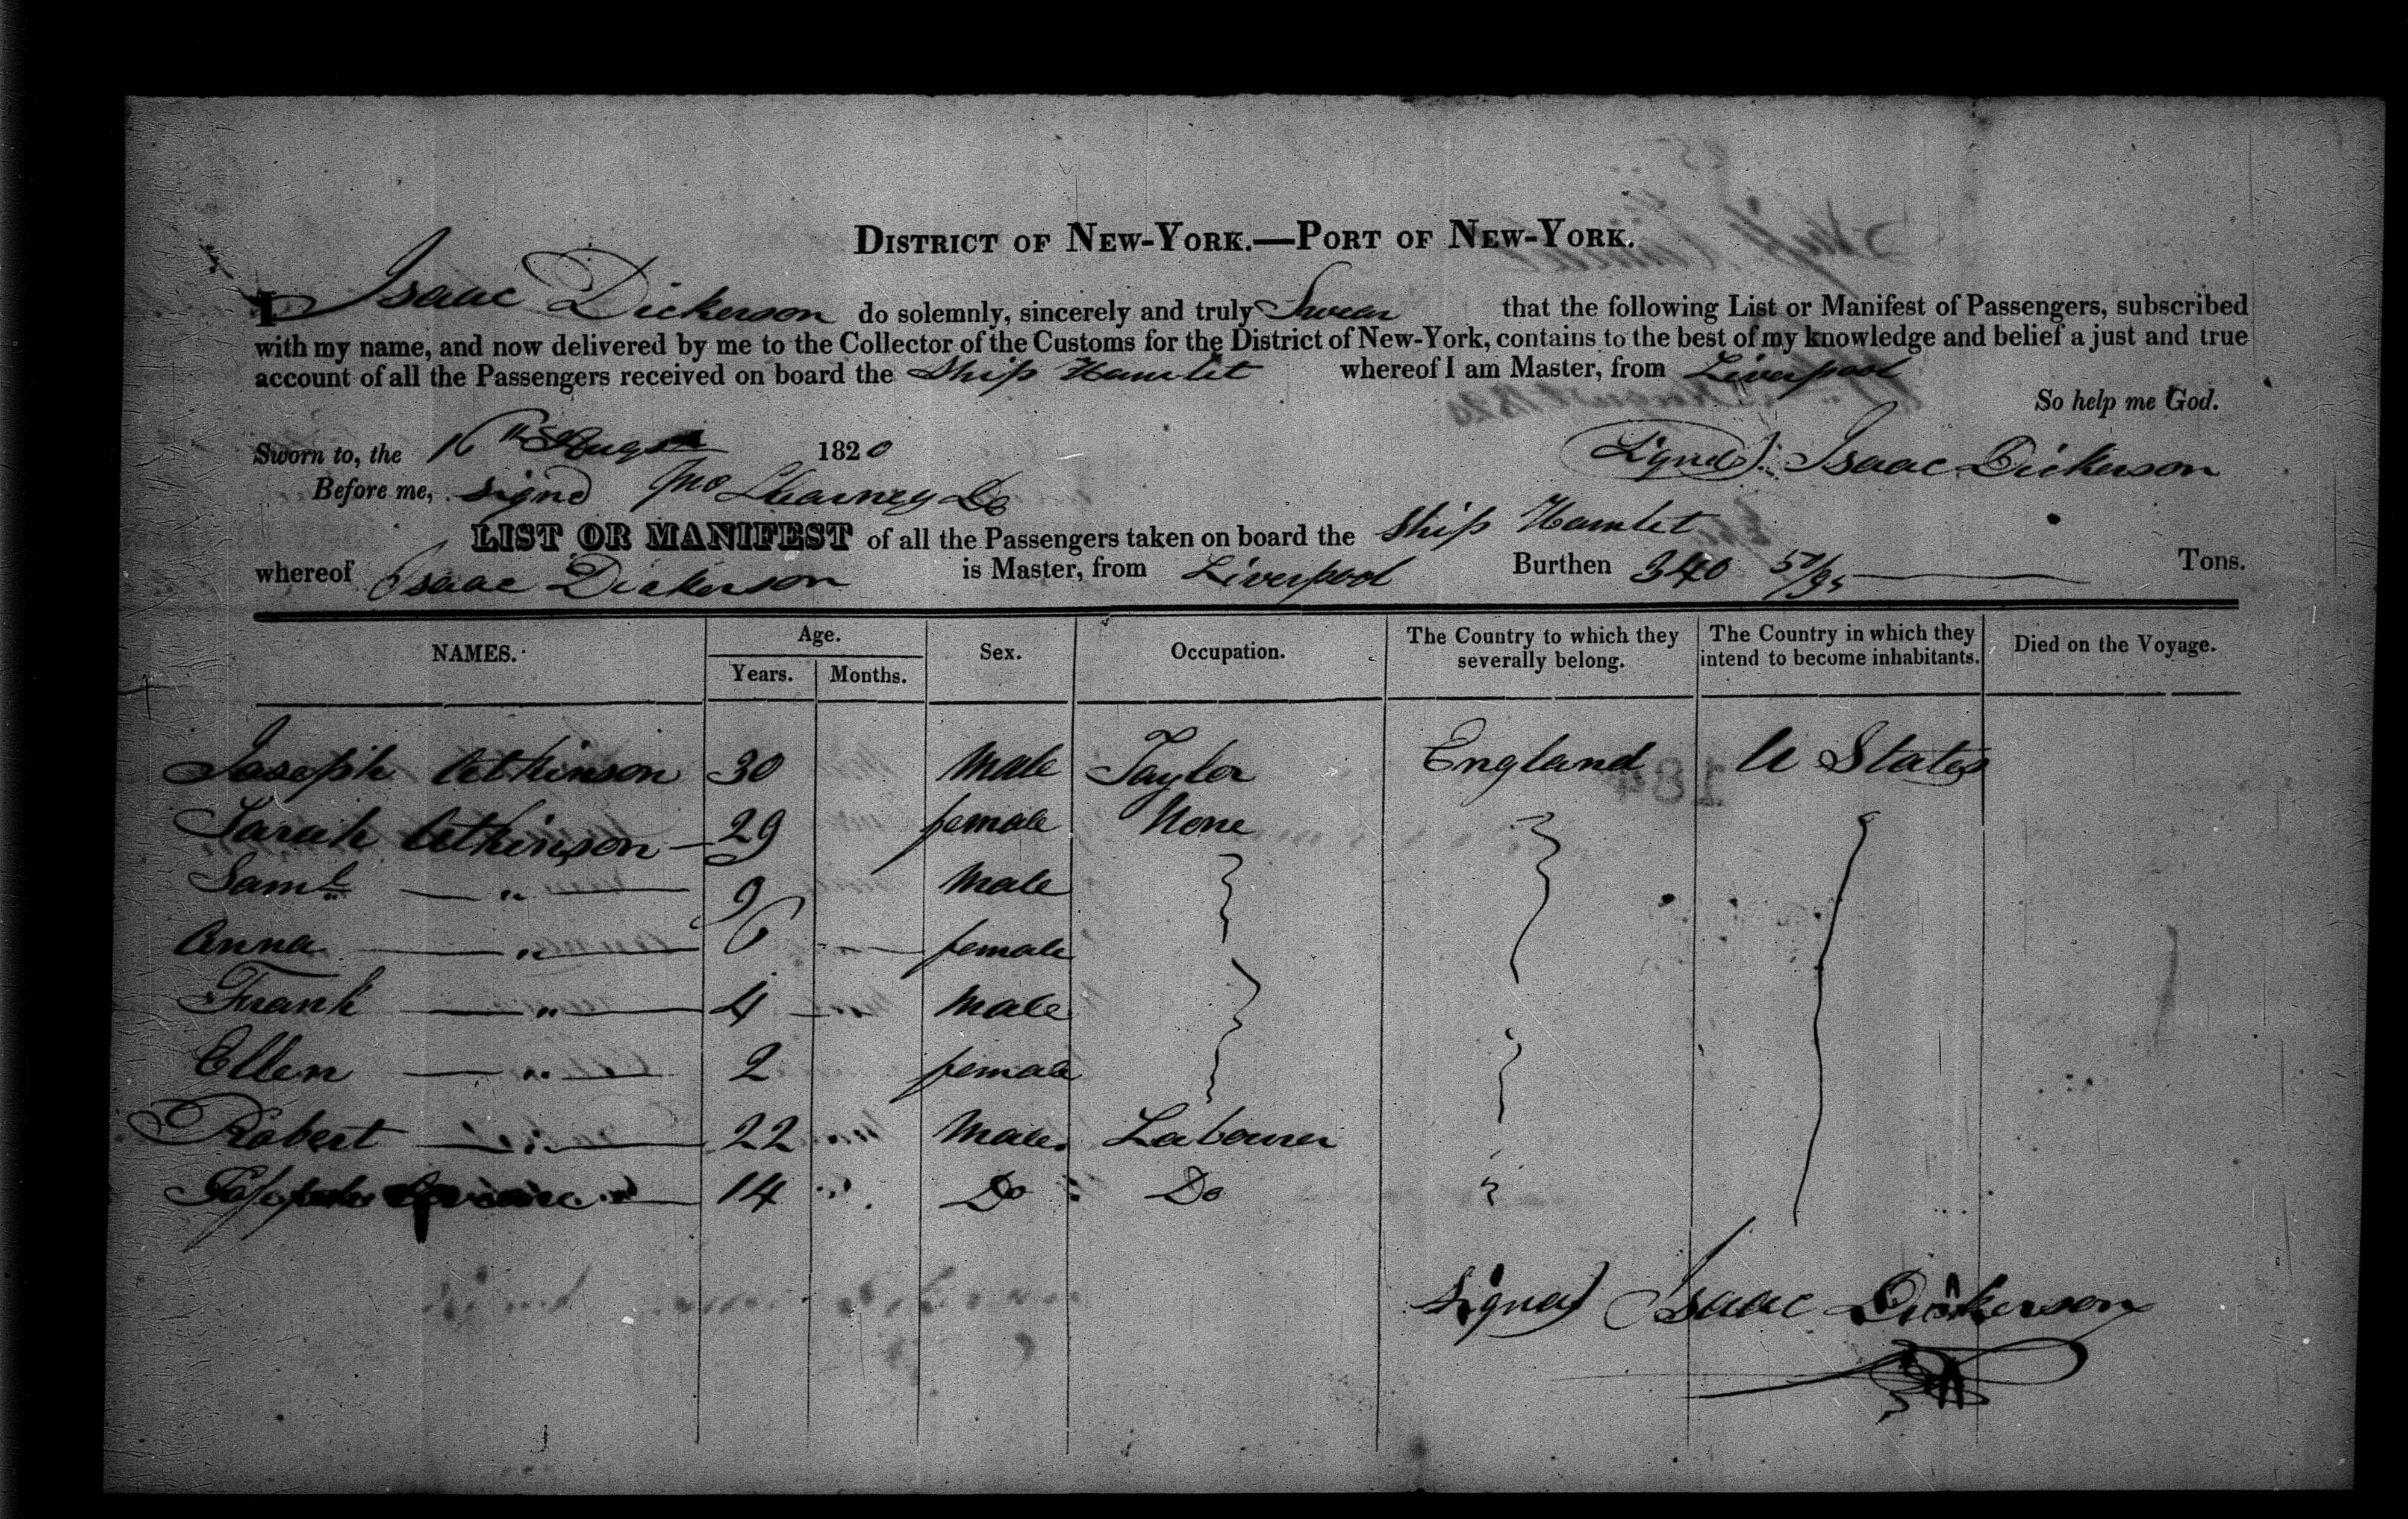 DISTRICT OF NEW-YORK.—PORT OF NEW-YORK.
I Isaac Dickerson do solemnly, sincerely and truly Swear that the following List or Manifest of Passengers, subscribed
with my name, and now delivered by me to the Collector of the Customs for the District of New-York, contains to the best of my knowledge and belief a just and true
account of all the Passengers received on board the Ship Hamlet whereof I am Master, from Liverpool
So help me God.
Sworn to, the 16th Augst 1820 (Signed) Isaac Dickerson
Before me, signd Jno
LIST OR MANIFEST of all the Passengers taken on board the Ship Hamlet
whereof Isaac Dickerson is Master, from Liverpool Burthen 340 51/95 Tons.
NAMES. Age. Years. Months. Sex. Occupation. The Country to which they severally belong. The Country in which they intend to become inhabitants. Died on the Voyage.
Joseph Atkinson 30 Male Taylor England U States
Sarah Atkinson 29 female None
Saml " 9 Male
Anna " 6 female
Frank " 4 Male
Ellen " 2 female
Robert " 22 Male Labourer
" 14 " Do Do
Signed Isaac Dickerson